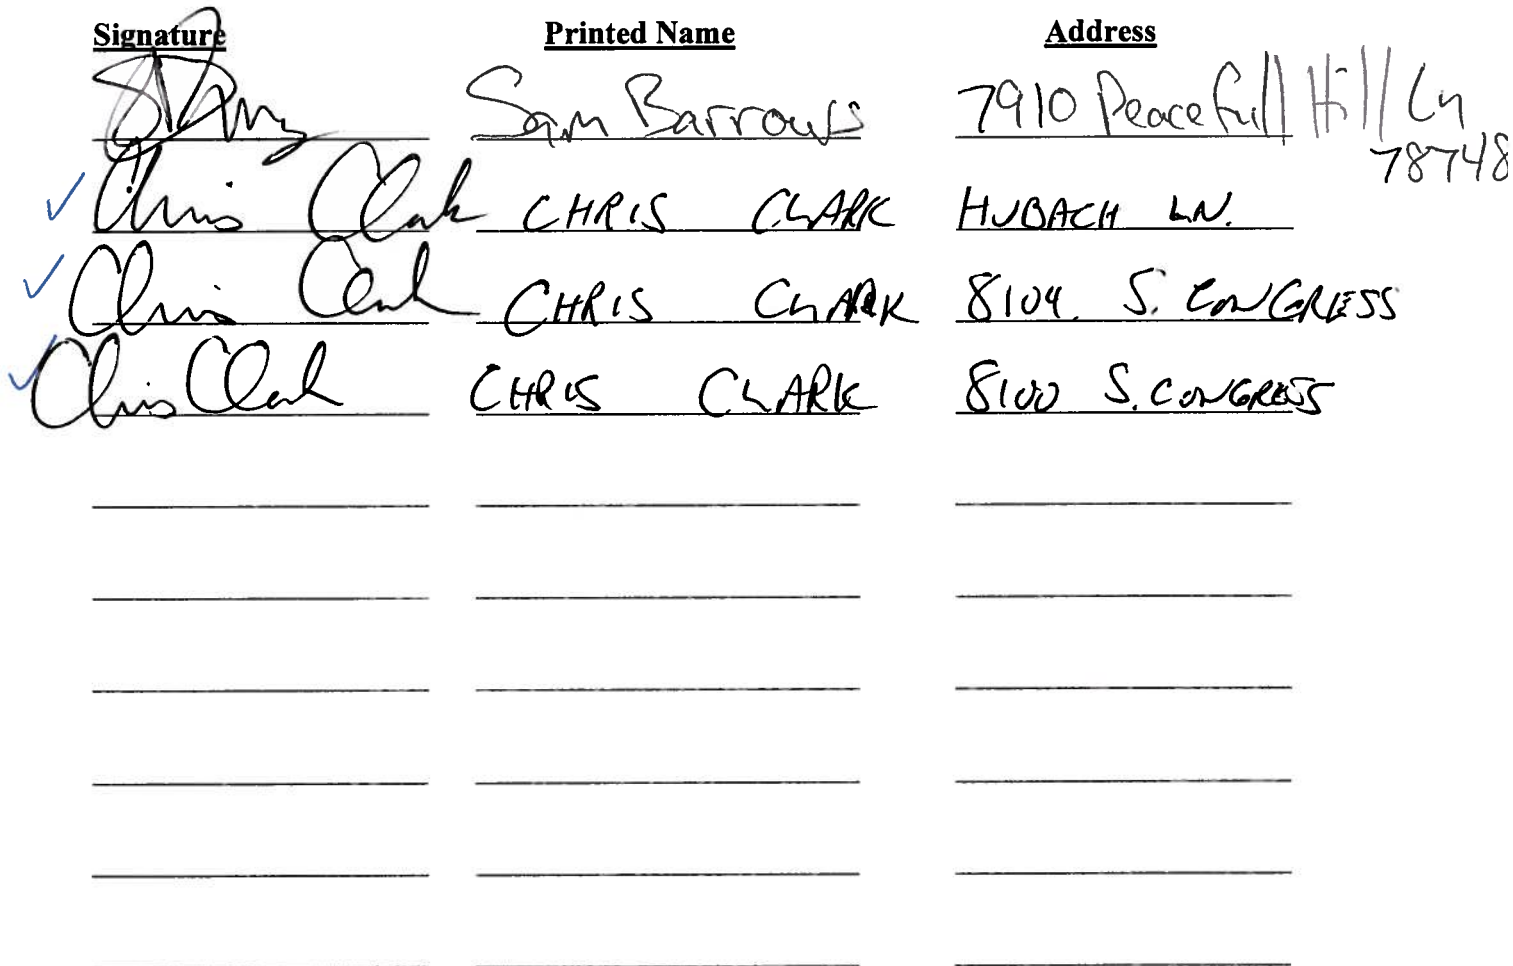 Signature Printed Name Address
Sam Barrows 7910 Peacefull Hill Ln
78748
Chris Clark CHRIS CLARK HUBACH LN.
Chris Clark CHRIS CLARK 8104 S. CONGRESS
Chris Clark CHRIS CLARK 8100 S. CONGRESS